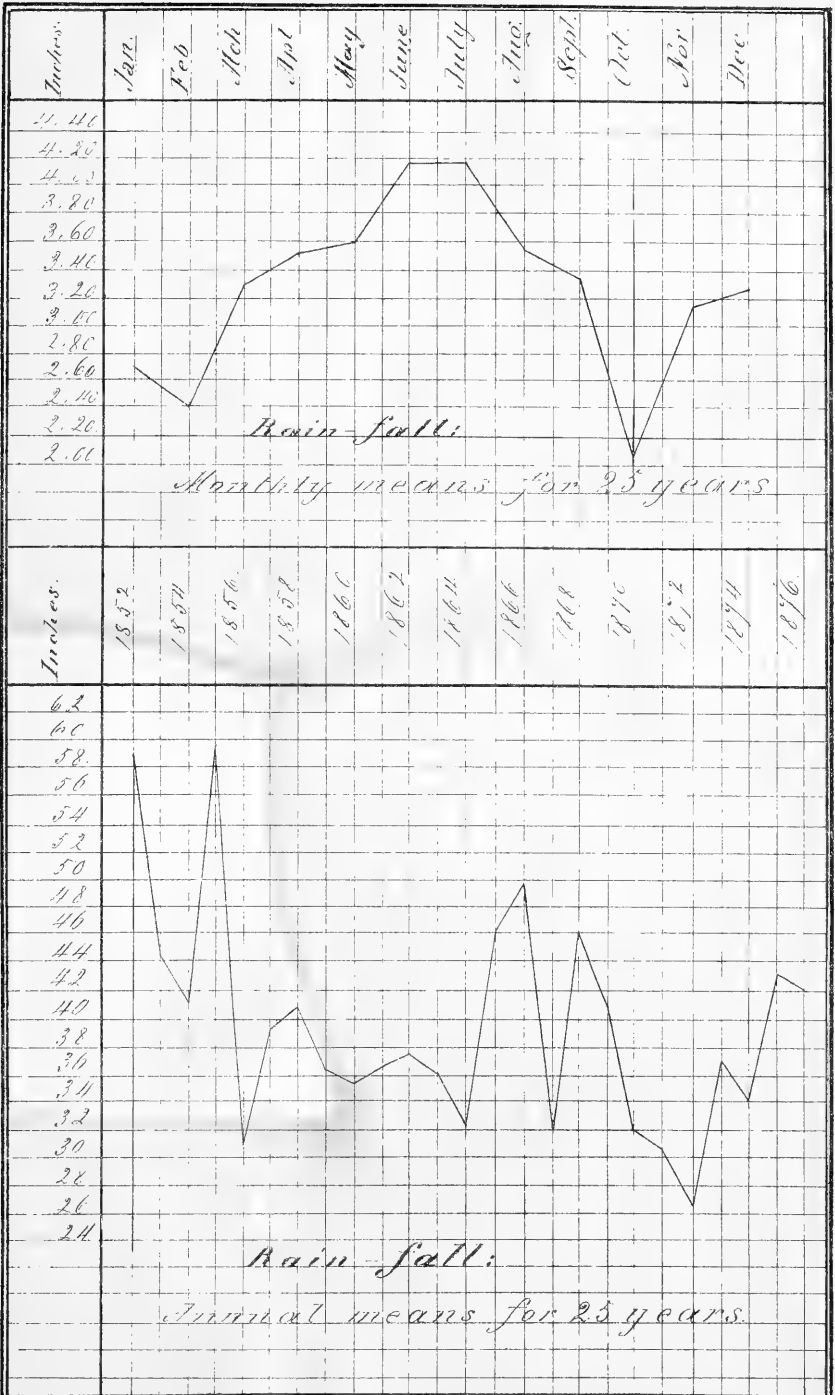 Inches. Jan. Feb Mch Apl May June July Aug. Sept. Oct. Nov Dec
4.40
4.20
4.00
3.80
3.60
3.40
3.20
3.00
2.80
2.60
2.40
2.20
2.00
Rain-fall:
Monthly means for 25 years
Inches. 1852 1854 1856 1858 1860 1862 1864 1866 1868 1870 1872 1874 1876
62
60
58.
56
54
52
50
48
46
44
42
40
38
36
34
32
30
28
26
24
Rain-fall:
Annual means for 25 years.